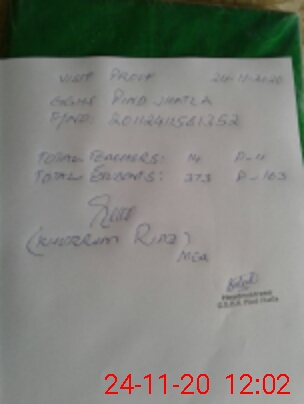 VISIT PROOF 24-11-2020
GGHS PIND JHATLA
TOTAL TEACHERS: 14 P-11
TOTAL STUDENTS: 373 P-163
(KHURRAM RIAZ)
MEA
Headmistress
G.G.H.S. Pind Jhatla
24-11-20 12:02